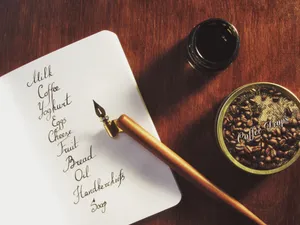 Milk
Coffee
Yoghurt
Eggs
Cheese
Fruit
Bread
Oil
Handkerchiefs
Soap